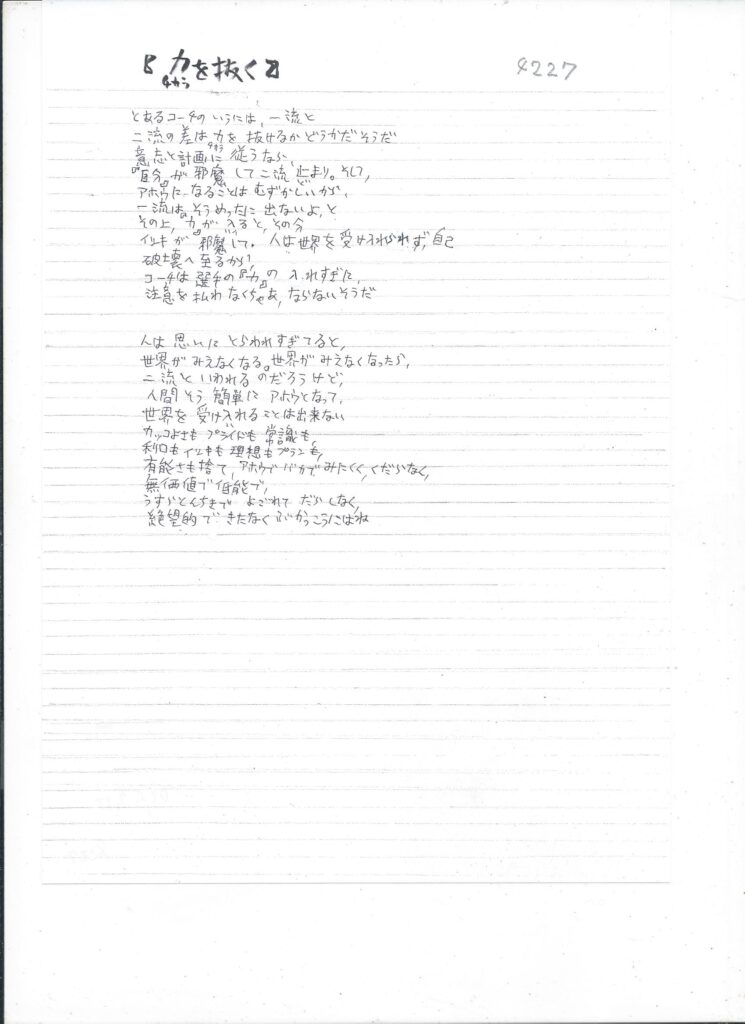 『力を抜く』
チカラ
4227
とあるコーチのいうには、一流と
二流の差は力を抜けるかどうかだそうだ
意志と計画に従うなら、
『自分』が邪魔して二流止まり。そして、
アホウになることはむずかしいから、
一流は、そうめったに出ないよ、と
その上、『力』が入ると、その分
イシキが邪魔して。人は世界を受け入れられず、自己
破壊へ至るから、
コーチは選手の『力』の入れすぎに、
注意を払わなくちゃあ、ならないそうだ
人は思いにとらわれすぎてると、
世界がみえなくなる。世界がみえなくなったら、
二流といわれるのだろうけど、
人間そう簡単にアホウとなって、
世界を受け入れることは出来ない
カッコよさもプライドも常識も、
利口もイシキも理想もプランも、
有能さも捨て、アホウでバカでみにくく、くだらなく、
無価値で低能で、
うすらとんちきでよごれてだらしなく、
絶望的できたなくぶかっこうにはね